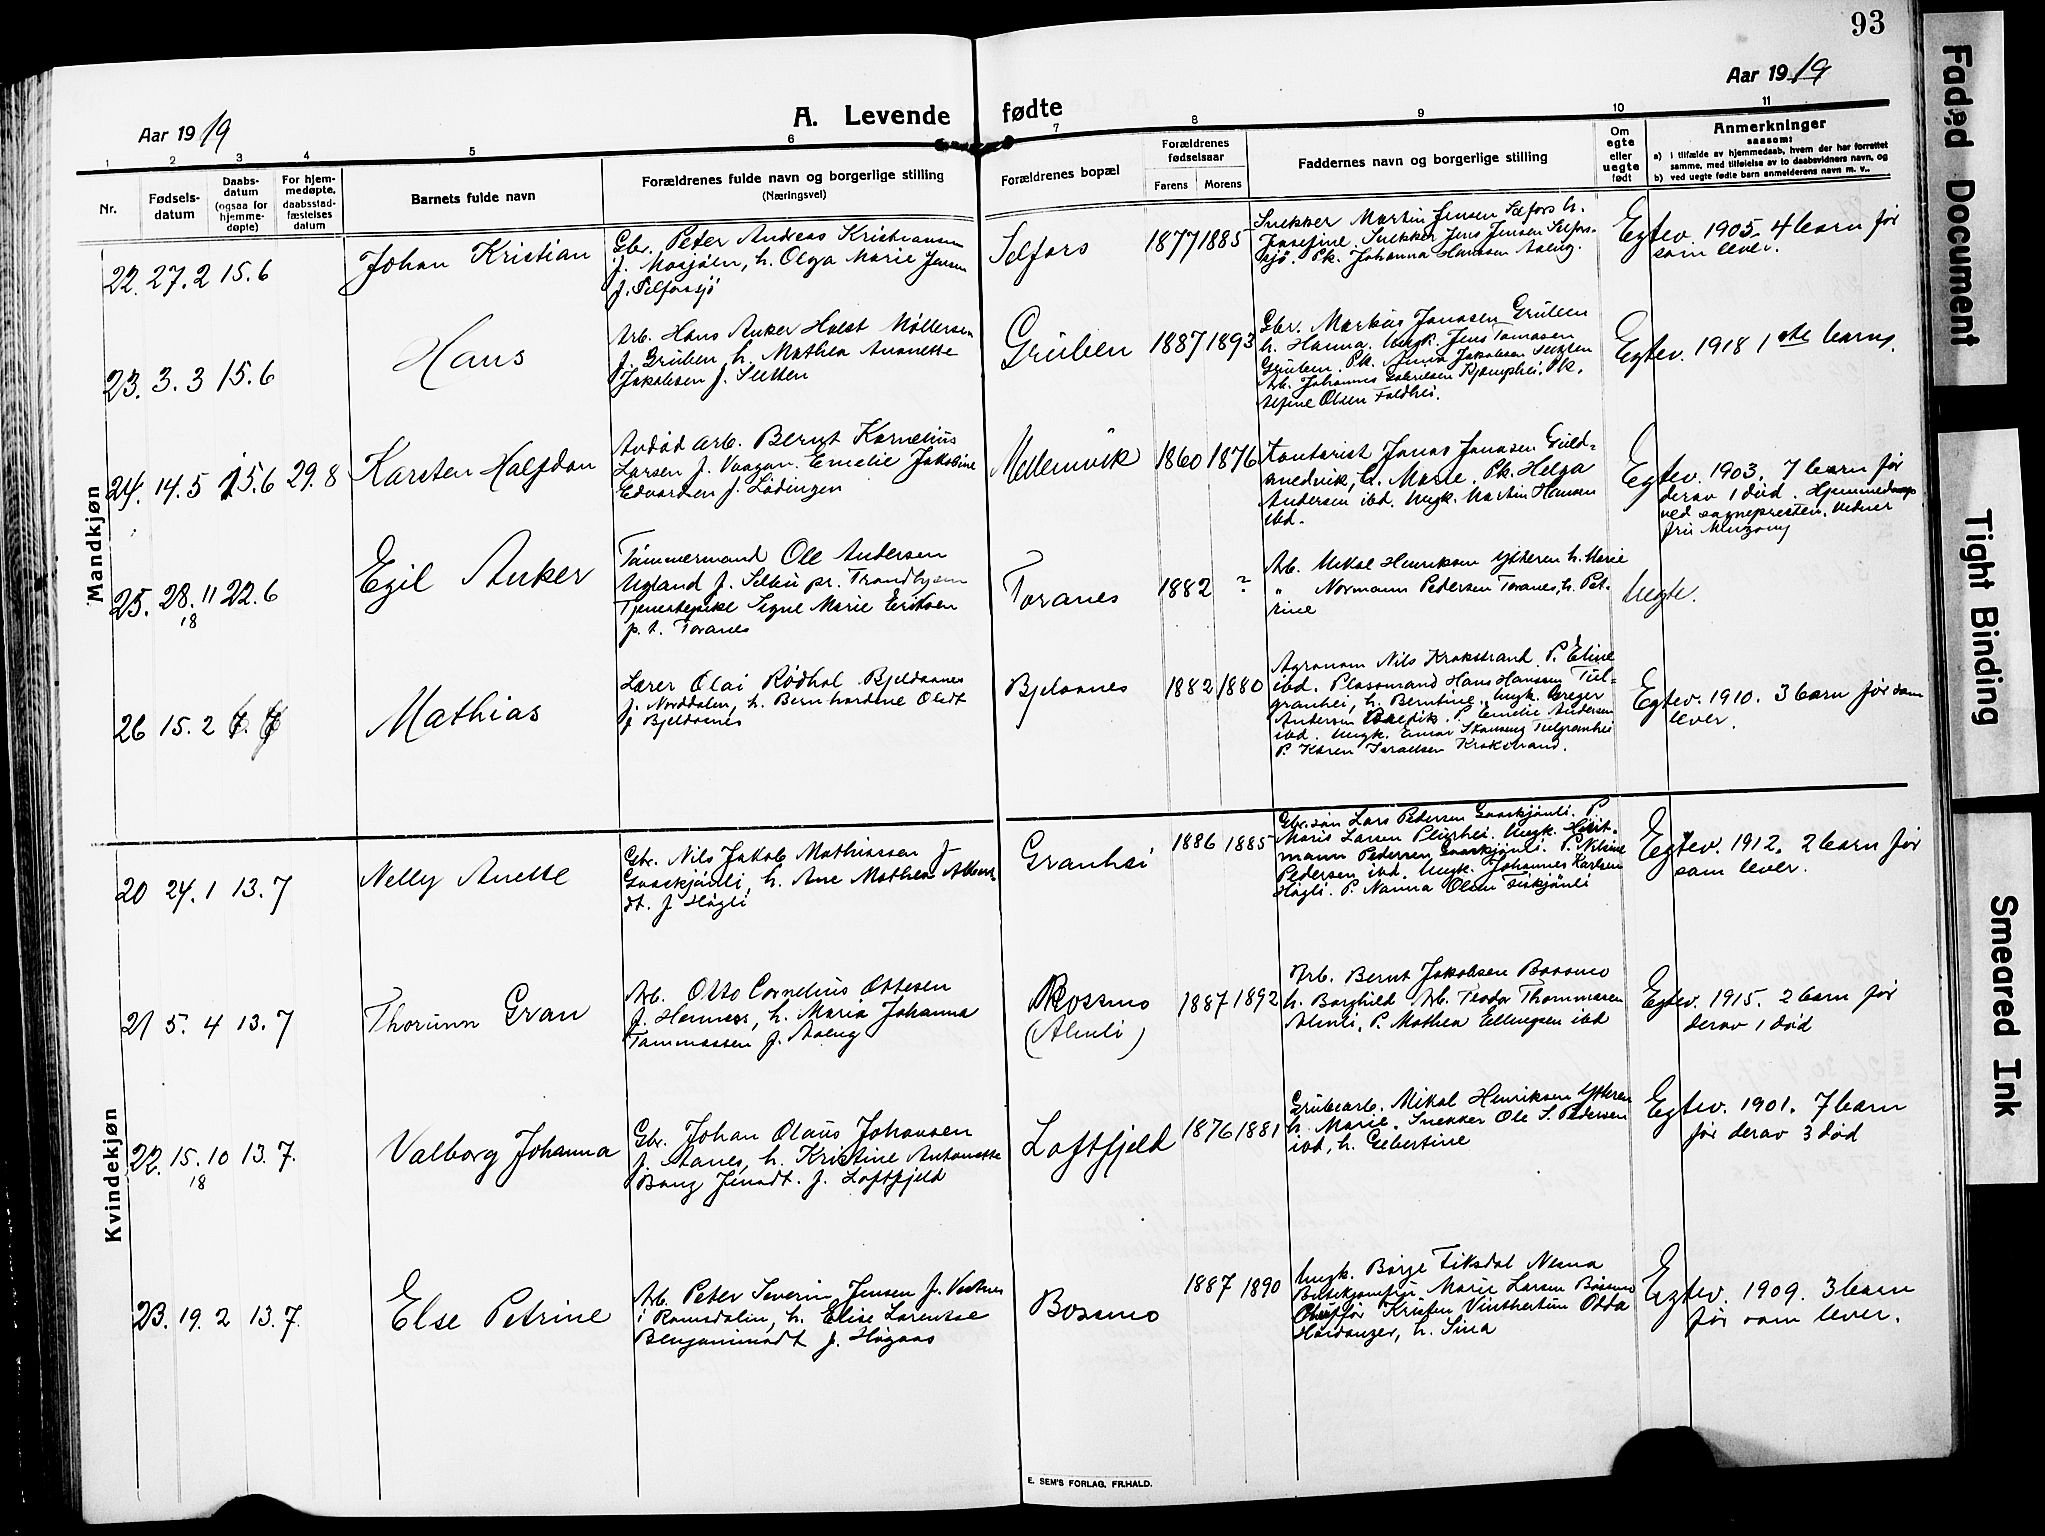 93
Aar 1919
Aar 1919
A. Levende fødte
1 2 3 4 5 6 7 8 9 10 11
Nr.
Fødsels-
datum
Daabs-
datum
(ogsaa for
hjemme-
døpte)
For hjem-
medøpte,
daabsstad-
fæstelses
datum
Barnets fulde navn
Forældrenes fulde navn og borgerlige stilling
(Næringsvei)
Forældrenes bopæl
Forældrenes
fødselsaar
Farens Morens
Faddernes navn og borgerlige stilling
Om
egte
eller
uegte
født
Anmerkninger
saasom:
a) i tilfælde av hjemmedaab, hvem der har forrettet
samme, med tilføielse av to daabsvidners navn, og
b) ved uegte fødte barn anmelderens navn m. v..
Mandkjøn
22. 27.2 15.6
Johan Kristian
Gbr. Peter Andreas Kristiansen
f. Mosjøen, h. Olga Marie Jensen
f. Selforssjö
Selfors
1877 1885
Snekker Martin Jensen Selfors h.
Josefine. Snekker Jens Jensen Selfors-
sjö. Pk. Johanna Hanssen Aaeng.
Egtev. 1905. 4 barn før
som lever.
23. 3.3 15.6
Hans
Arb. Hans Anker Holst Møllersen
f. Gruben, h. Mathea Annette
Jakobsen f. Sletten
Gruben
1887 1893
Gbr. Markus Jonasen Gruben
h. Hanna. Ungk. Jens Tomasen
Gruben. Pk. Anna Jakobsen Sletten
Arb. Johannes Gabrielsen Kjemphei. Pk.
Alfine Olsen Foldhei.
Egtev. 1918 1ste barn.
24. 14.5 15.6 29.8
Karsten Halfdan
Avdød arb. Bernt Kornelius
Larsen f. Vaagan. Emelie Jakobine
Edvardsen f. Lödingen
Mellemvik
1860 1876
Kontorist Jonas Jonasen Guld-
smedvik, h. Marie. Pk. Helga
Andersen ibd. Ungk. Martin Hansen
ibd.
Egtev. 1903. 7 barn før
derav 1 död. Hjemmedøpt
ved sognepresten. Vidner
fru
25. 28.11 22.6
18
Egil Anker
Tömmermand Ole Andersen
Ugland f. Selbu pr. Trondhjem
Tjenestepike Signe Marie Eriksen
p.t. Toranes
Toranes
1882 ?
Arb. Mikal Henriksen Ytteren h. Marie
" Normann Pedersen Toranes, h. Pet-
rine
Uegte.
26 15.2 6.7
Mathias
Lærer Olai Rödhol Bjeldaanes
f. Norddalen, h. Bernhardine Olsdt
f. Bjeldaanes
Bjelaanes
1882 1880
Agronom Nils Krokstrand. P. Eline
ibd. Plassmand Hans Hanssen Tul-
granhei, h. Berntine. Ungk. Greger
Andersen P. Emelie Andersen
ibd. Ungk. Einar Stenseng Tulgranhei
P. Karen Israelsen Krokstrand.
Egtev. 1910. 3 barn før som
lever.
Kvindekjøn
20 24.1 13.7
Nelly Anette
Gbr. Nils Jakob Mathiassen f.
Gaaskjönli, h. Ane Mathea Albert-
dt. f. Högli
Granhei
1886 1885
Gbr.sön Lars Pedersen Gaaskjönli. P.
Marit Larsen Plurhei. Ungk. Herit-
mann Pedersen Gaaskjönli. P. Nilsine
Pedersen ibd. Ungk. Johannes Karlsen
Högli. P. Nanna Olsen Fiskjönli
Egtev. 1912. 2 barn før
som lever.
21 5.4 13.7
Thorunn Gran
Arb. Otto Cornelius Ottesen
f. Hemnes, h. Maria Johanna
Tommassen f. Aaeng
Bossmo
(Alnli)
1887 1892
Arb. Bernt Jakobsen Bossmo
h. Borghild Arb. Teodor Thommasen
Alnli. P. Mathea Ellingsen ibd
Egtev. 1915. 2 barn før
derav 1 död
22. 15.10 13.7.
18
Valborg Johanna
Gbr. Johan Olaus Johansen
f. Aanes, h. Kristine Antonette
Bang Jensdt. f. Loftfjeld
Loftfjeld
1876 1881
Grubearb. Mikal Henriksen Ytteren
h. Marie. Snekker Ole S. Pedersen
ibd, h. Gebertine
Egtev. 1901. 7 barn
før derav 3 död
23. 19.2 13.7.
Else Petrine
Arb. Peter Severin Jensen f. Vestnes
i Romsdalen, h. Elise Lorentse
Benjaminsdt f. Högaas
Bossmo
1887 1890
Ungk. Börge Fiksdal Nesna
Marie Larsen Bossmo
Kristen Odda
Hardanger, h. Sina
Egtev. 1909. 3 barn
før som lever.
E. SEM'S FORLAG, FR.HALD.
Faded Document
Tight Binding
Smeared Ink